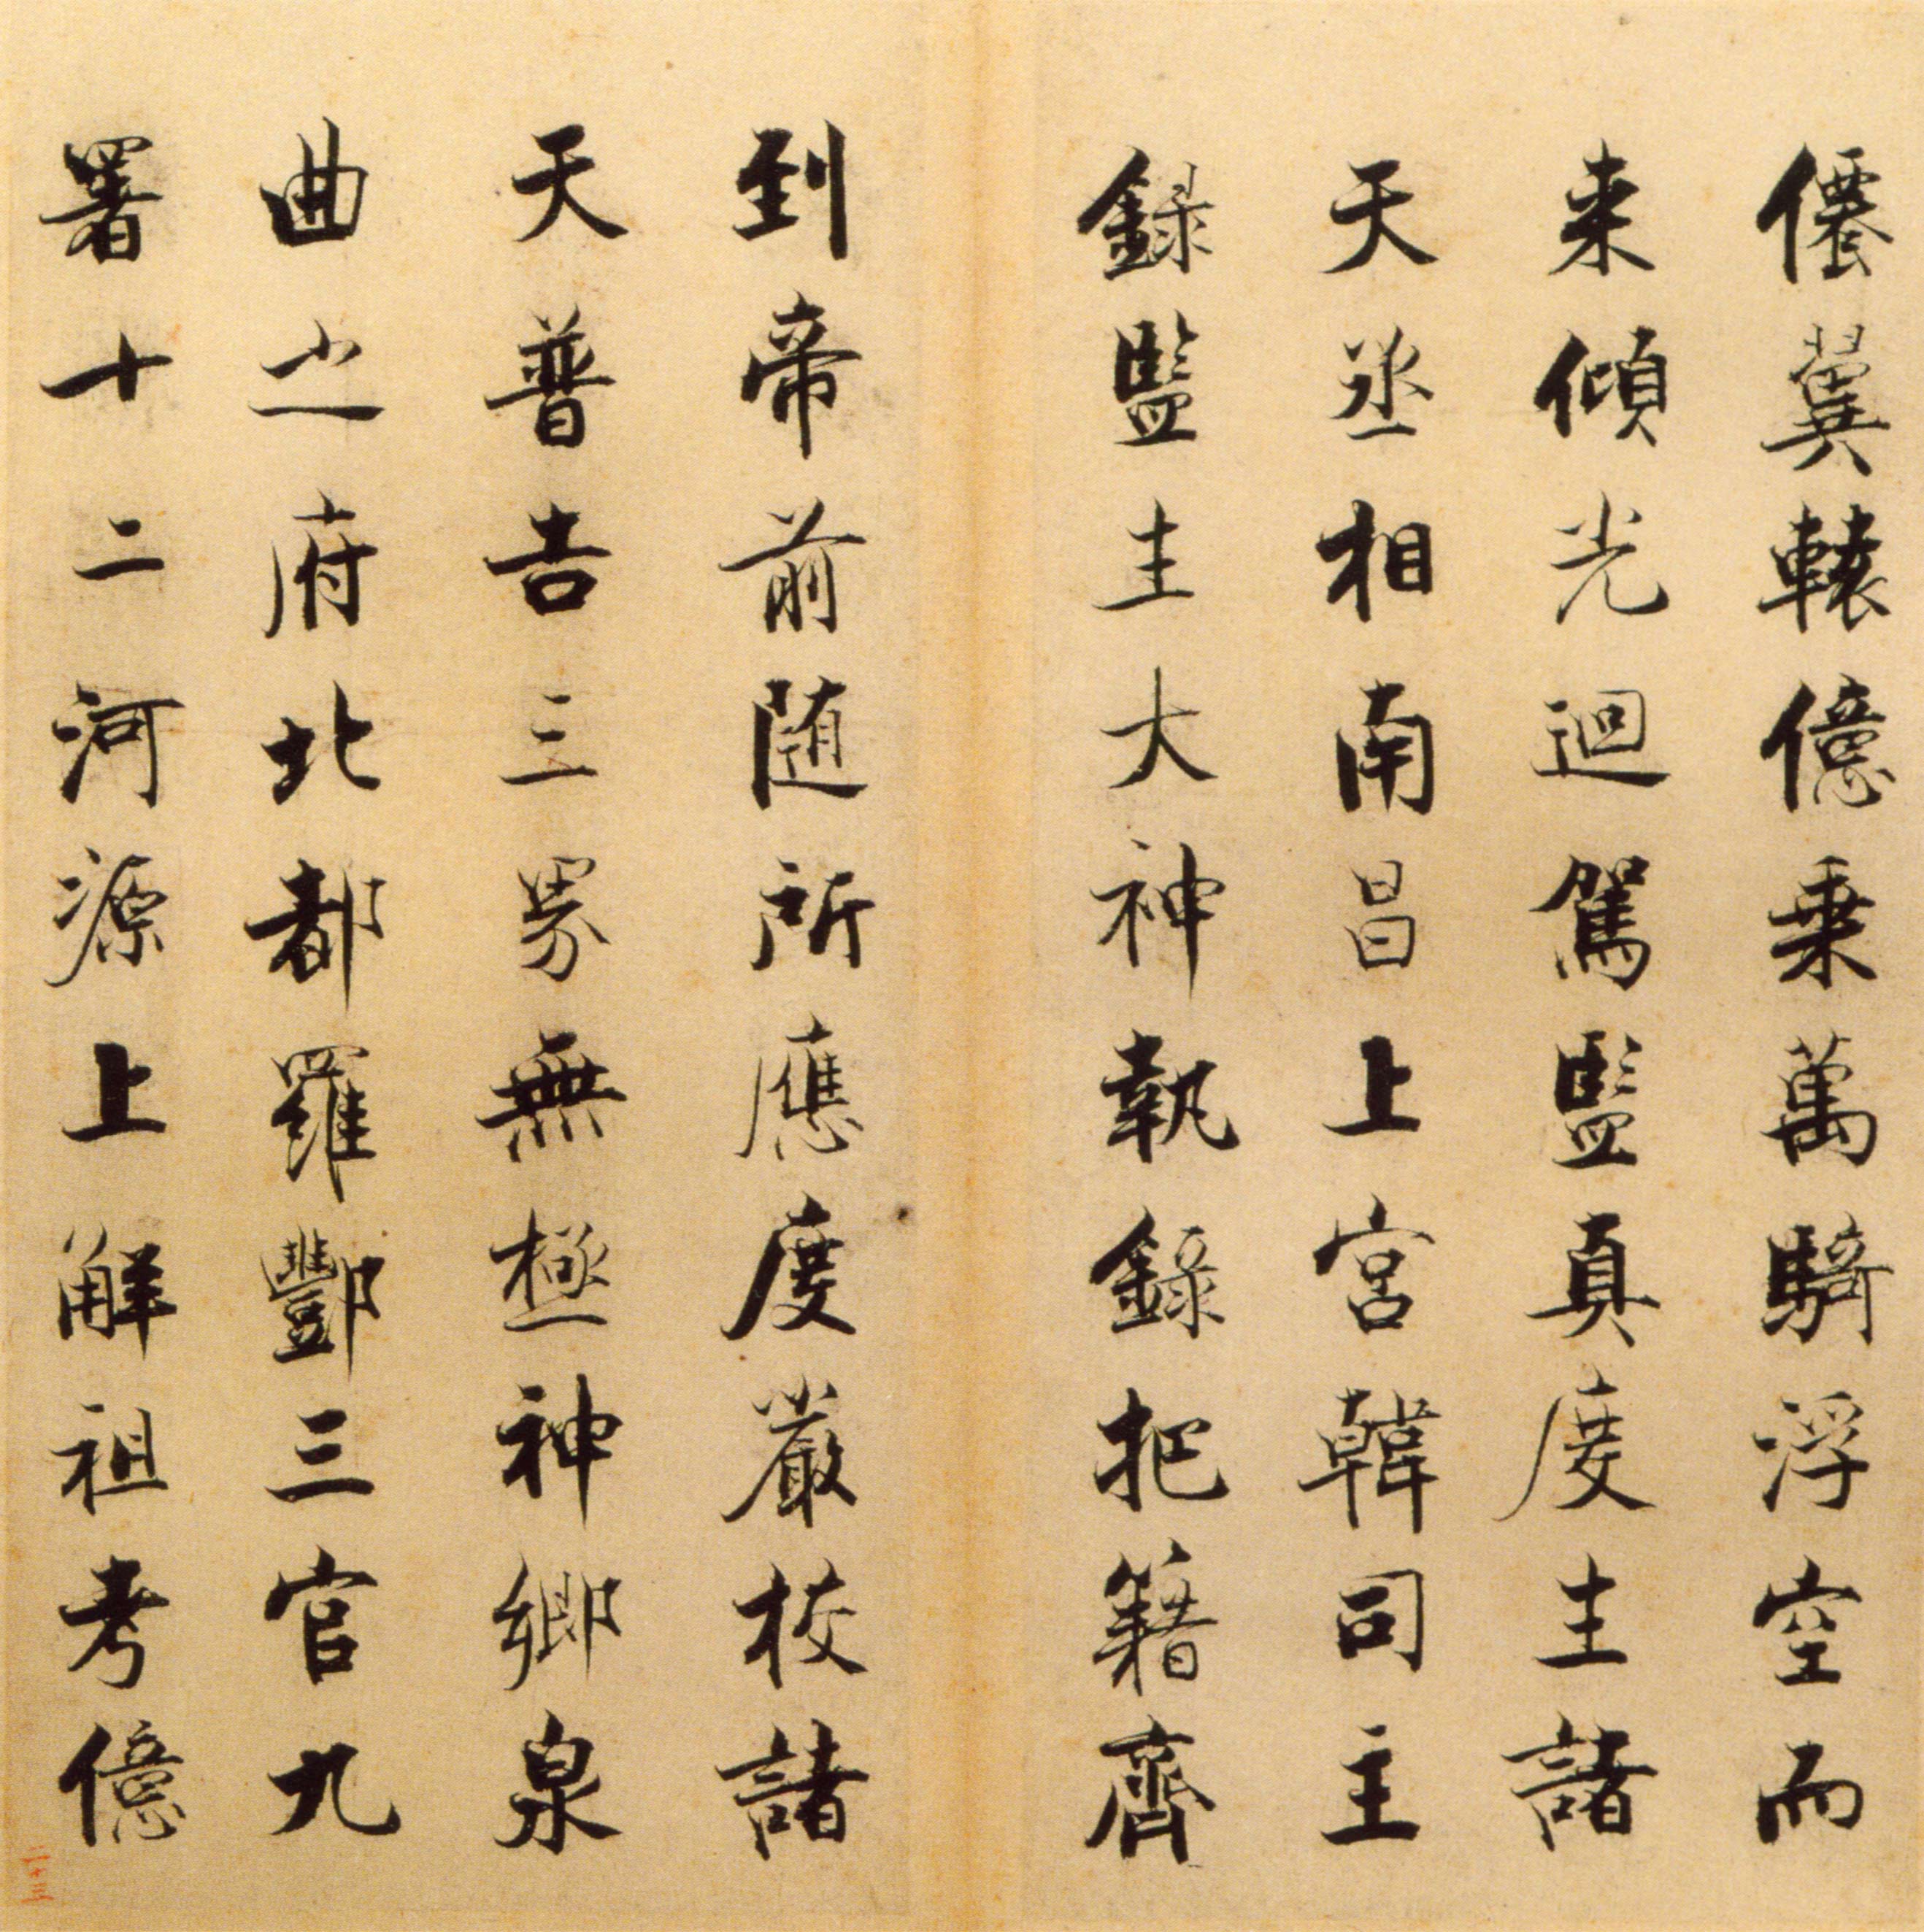 僊翼轅億乘萬騎浮空而
來傾光迴駕監真度生諸
天丞相南昌上宮韓司主
錄監生大神執錄把籍齊
到帝前随所應度嚴校諸
天普告三界無極神鄉泉
曲之府北都羅酆三官九
署十二河源上解祖考億
二十三